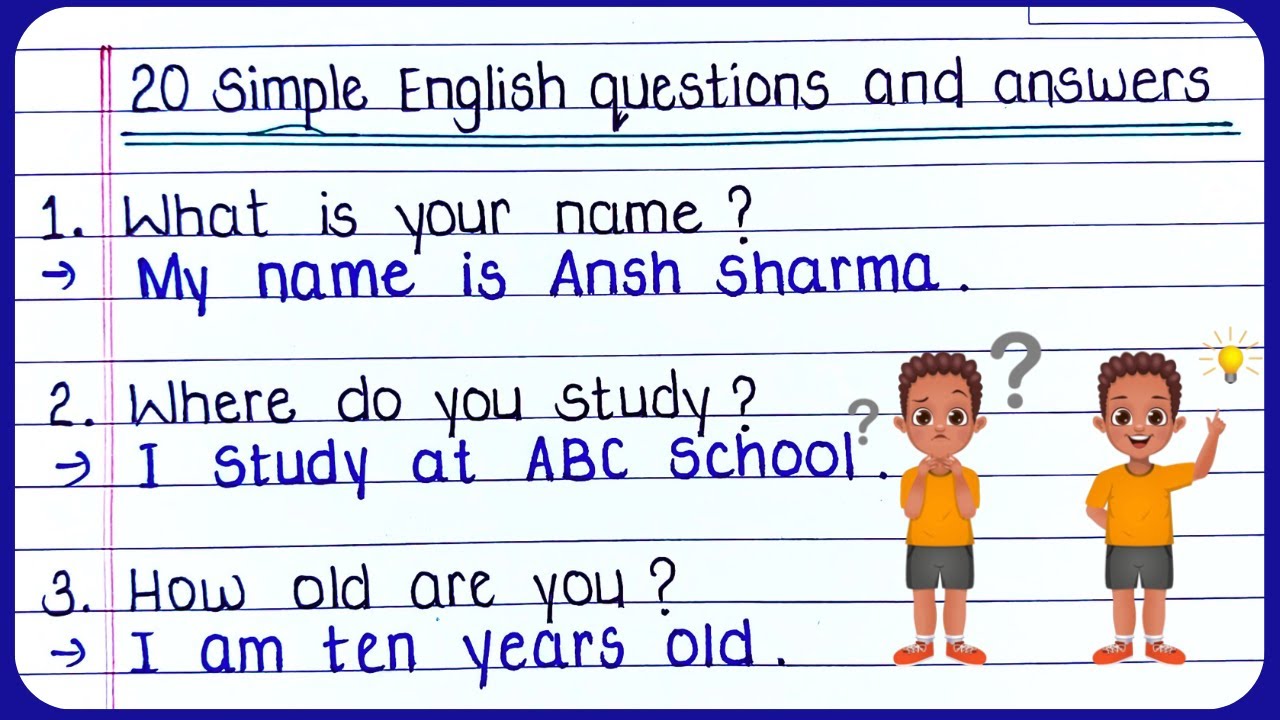 20 Simple English questions and answers
1. What is your name?
→ My name is Ansh sharma.
2. Where do you study?
→ I study at ABC school.
3. How old are you?
→ I am ten years old.